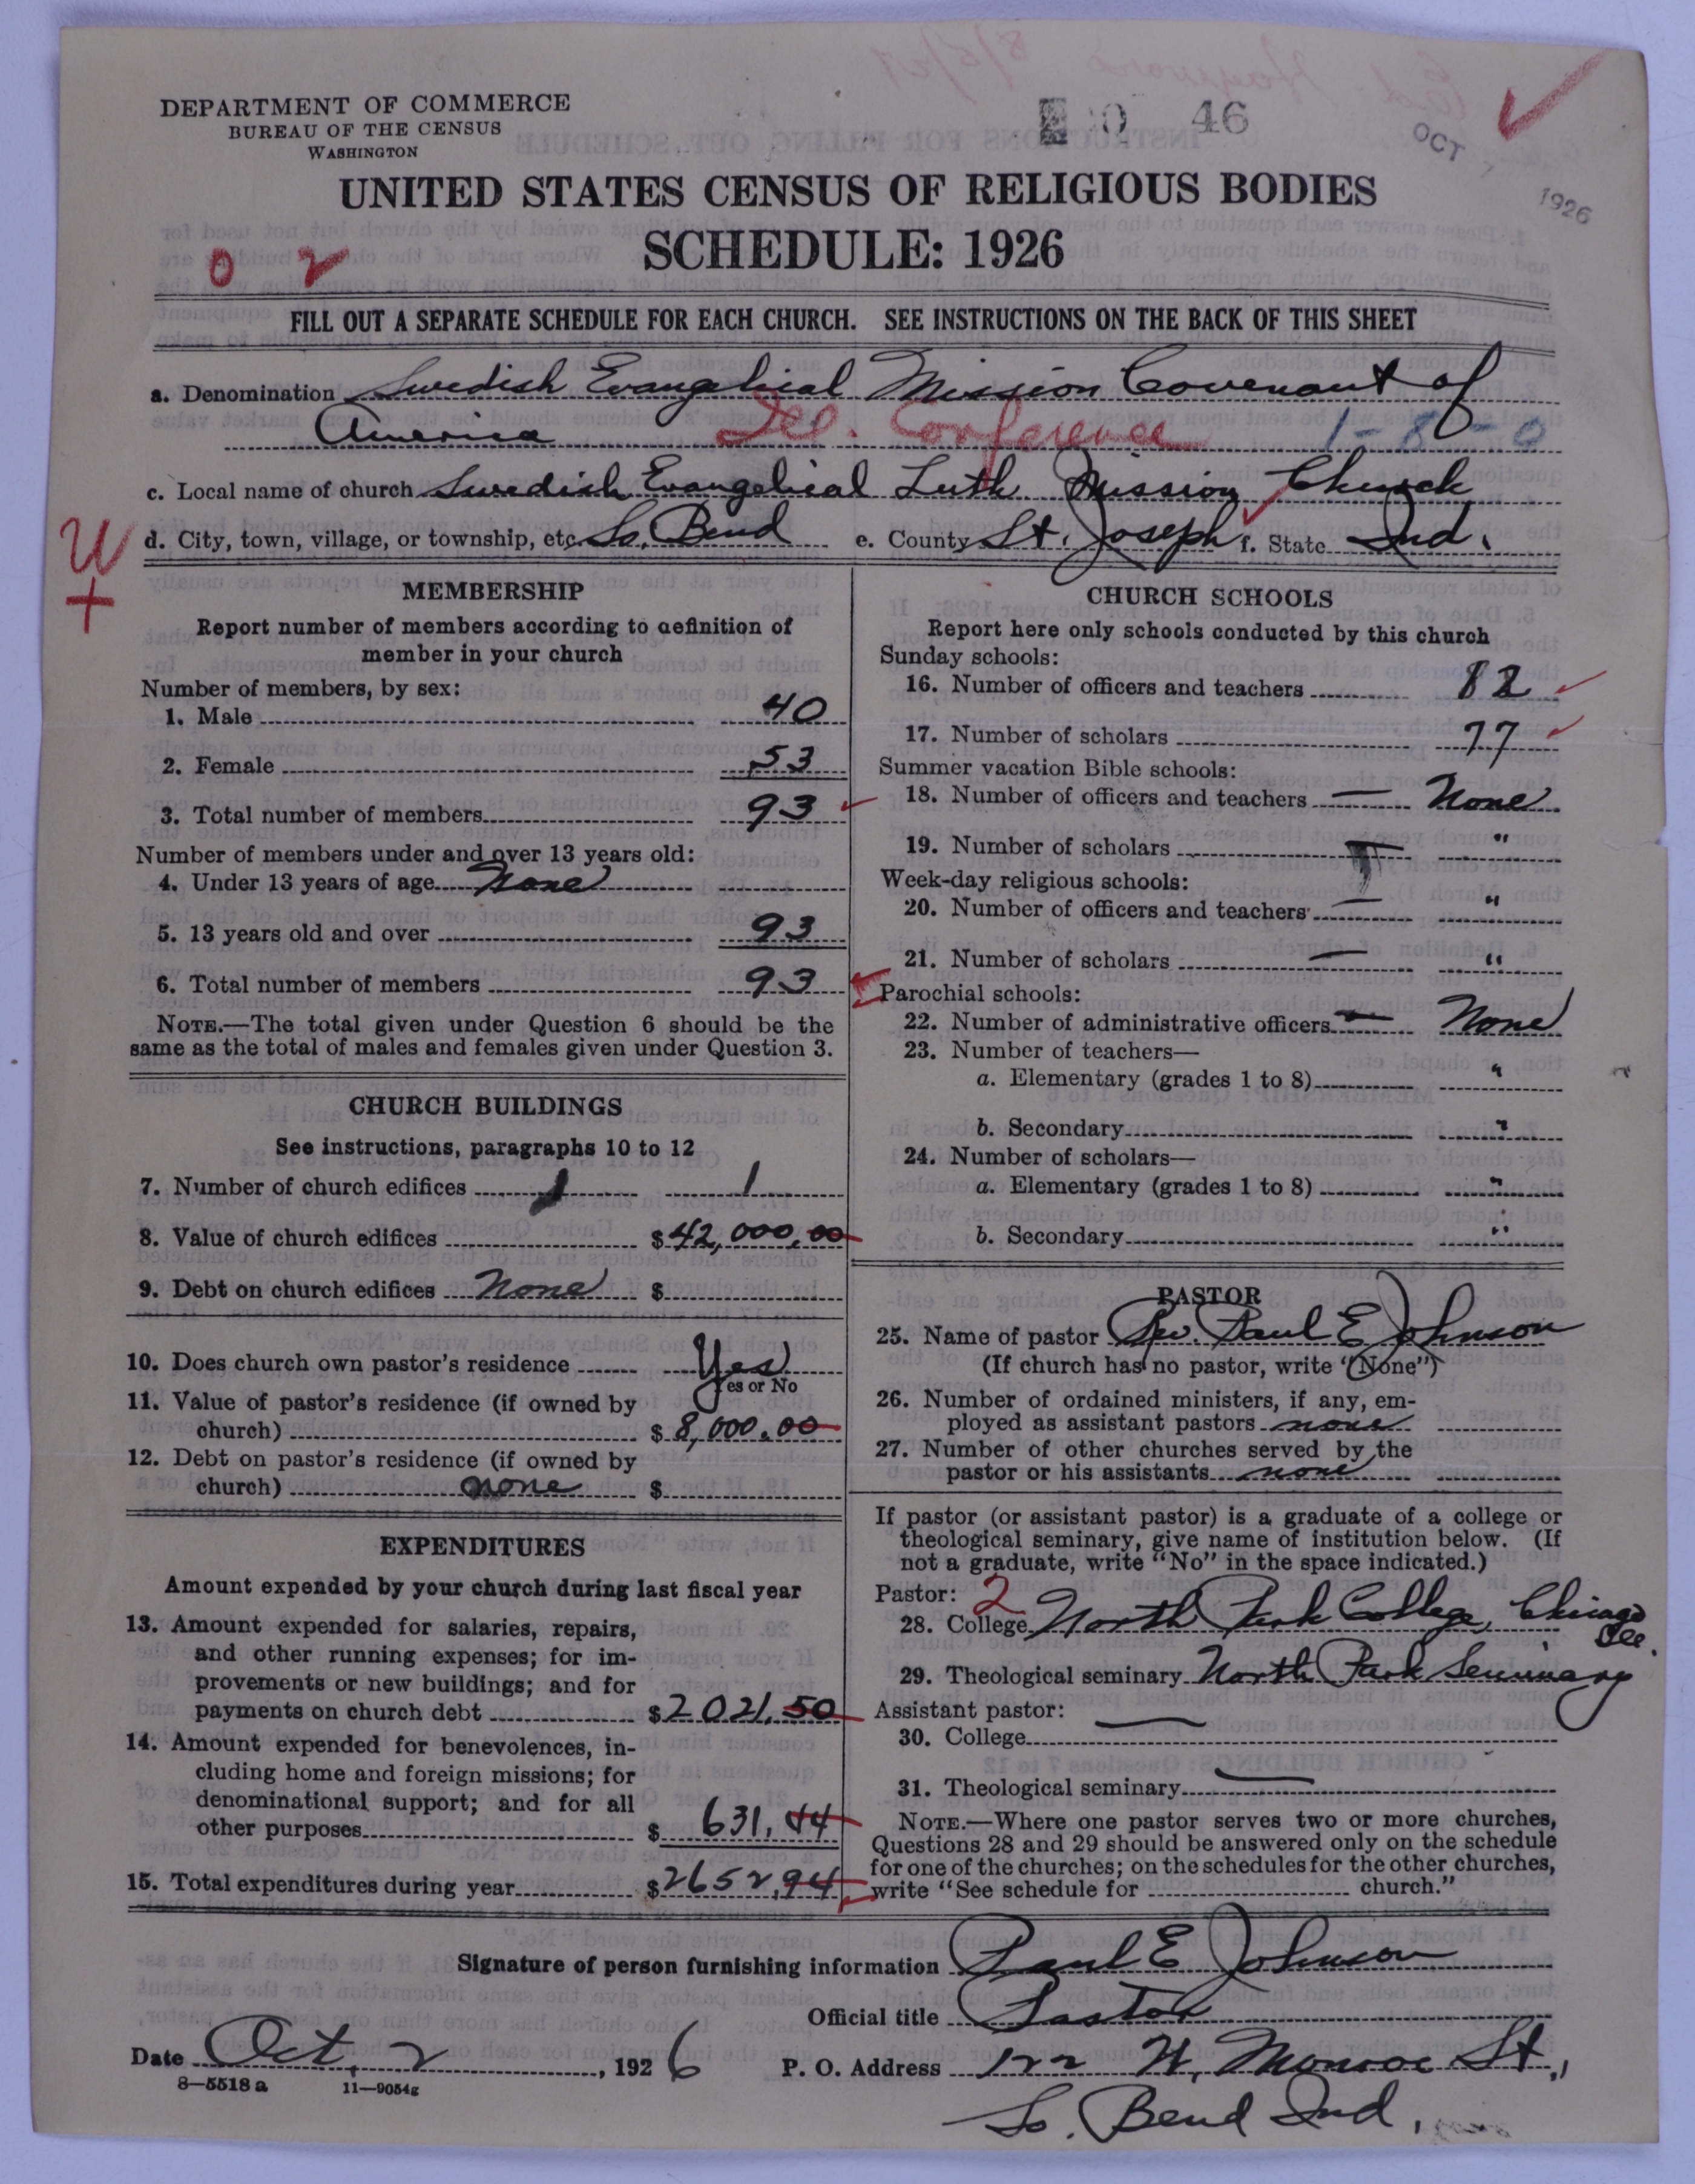 DEPARTMENT OF COMMERCE
BUREAU OF THE CENSUS
WASHINGTON
46
OCT 7 1926
UNITED STATES CENSUS OF RELIGIOUS BODIES
SCHEDULE: 1926
0 2
FILL OUT A SEPARATE SCHEDULE FOR EACH CHURCH. SEE INSTRUCTIONS ON THE BACK OF THIS SHEET
a. Denomination Swedish Evangelical Mission Covenant of
America Ill. Conference 1-8-0
c. Local name of church Swedish Evangelical Luth Mission Church
d. City, town, village, or township, etc. So. Bend e. County St. Joseph f. State Ind.
U
+
MEMBERSHIP
Report number of members according to definition of
member in your church
Number of members, by sex:
1. Male 40
2. Female 53
3. Total number of members 93
Number of members under and over 13 years old:
4. Under 13 years of age None
5. 13 years old and over 93
6. Total number of members 93
NOTE.—The total given under Question 6 should be the
same as the total of males and females given under Question 3.
CHURCH BUILDINGS
See instructions, paragraphs 10 to 12
7. Number of church edifices 1 1
8. Value of church edifices $42,000.00
9. Debt on church edifices None $
10. Does church own pastor's residence Yes
Yes or No
11. Value of pastor's residence (if owned by
church) $ 8,000.00
12. Debt on pastor's residence (if owned by
church) none $
EXPENDITURES
Amount expended by your church during last fiscal year
13. Amount expended for salaries, repairs,
and other running expenses; for im-
provements or new buildings; and for
payments on church debt $2021.50
14. Amount expended for benevolences, in-
cluding home and foreign missions; for
denominational support; and for all
other purposes $ 631.44
15. Total expenditures during year $2652.94
CHURCH SCHOOLS
Report here only schools conducted by this church
Sunday schools:
16. Number of officers and teachers 12
17. Number of scholars 77
Summer vacation Bible schools:
18. Number of officers and teachers — None
19. Number of scholars "
Week-day religious schools:
20. Number of officers and teachers — "
21. Number of scholars — "
Parochial schools:
22. Number of administrative officers — None
23. Number of teachers—
a. Elementary (grades 1 to 8) "
b. Secondary "
24. Number of scholars—
a. Elementary (grades 1 to 8) "
b. Secondary "
PASTOR
25. Name of pastor Rev. Paul E Johnson
(If church has no pastor, write "None")
26. Number of ordained ministers, if any, em-
ployed as assistant pastors none
27. Number of other churches served by the
pastor or his assistants none
If pastor (or assistant pastor) is a graduate of a college or
theological seminary, give name of institution below. (If
not a graduate, write "No" in the space indicated.)
Pastor: 2
28. College North Park College, Chicago
Ill.
29. Theological seminary North Park Seminary
Assistant pastor:
30. College —
31. Theological seminary —
NOTE.—Where one pastor serves two or more churches,
Questions 28 and 29 should be answered only on the schedule
for one of the churches; on the schedules for the other churches,
write "See schedule for church."
Signature of person furnishing information Paul E Johnson
Official title Pastor
Date Oct. 2, 1926 P. O. Address 122 W. Monroe St.,
8—5518a 11—9054g
So. Bend Ind.